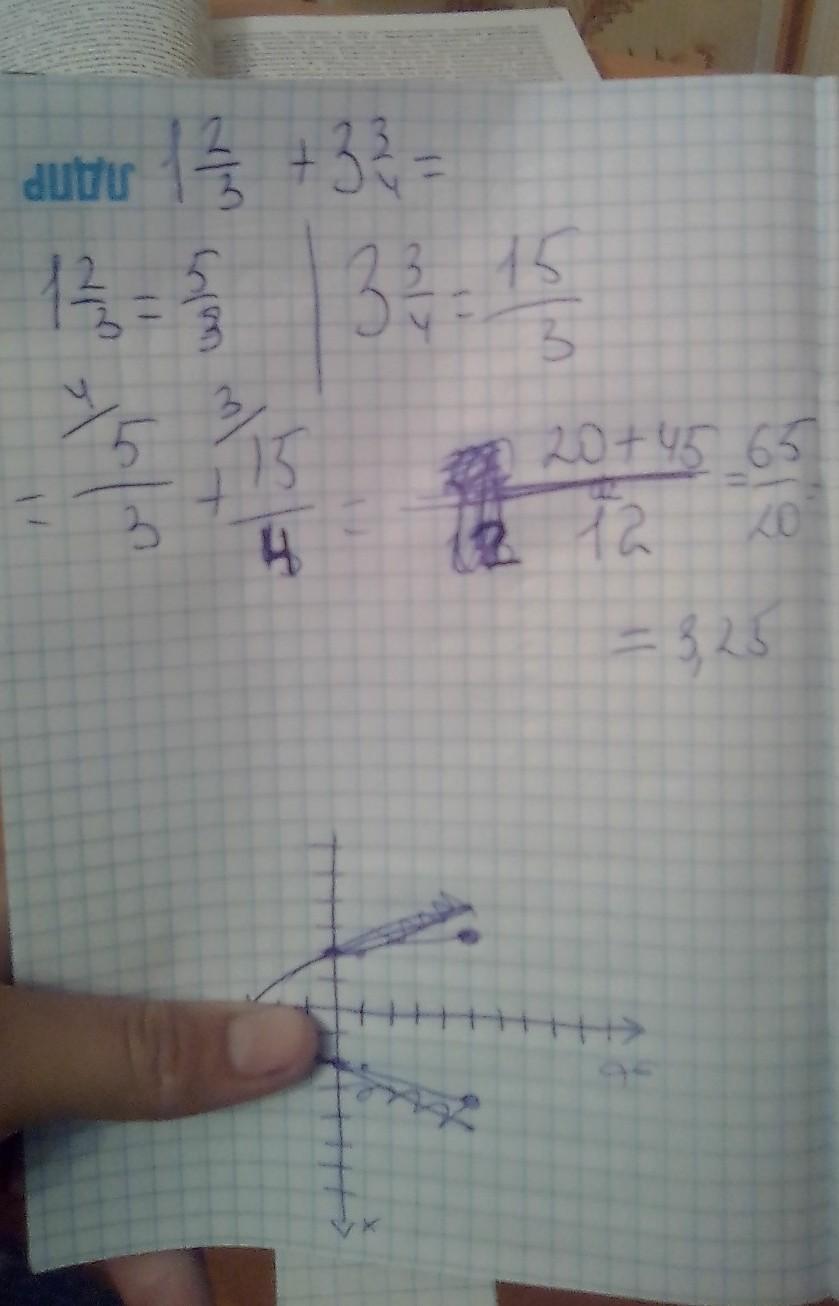 ЛДПР 1 2/3 + 3 3/4 =
1 2/3 = 5/3 | 3 3/4 = 15/3
= 5/3 + 15/4 = 20+45/12 = 65/20 =
= 3,25
x